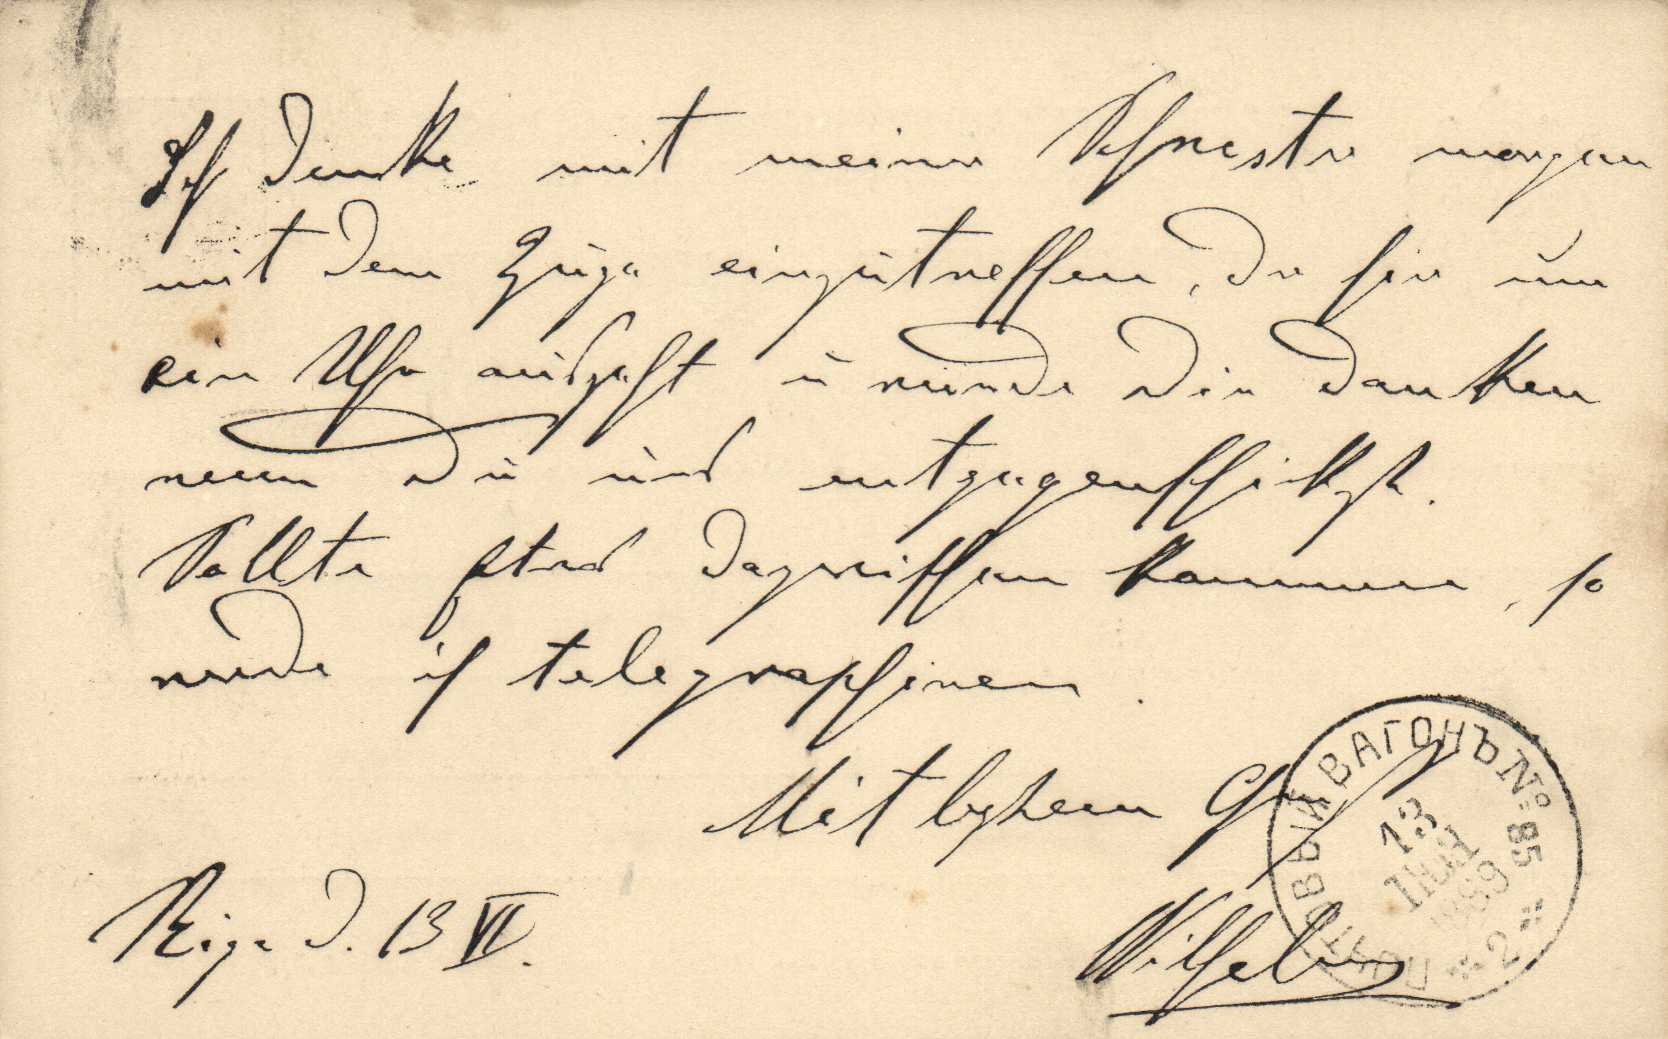 Ich denke mit meiner Schwester morgen
mit dem Zuge einzutreffen, der hier um
ein Uhr ausgeht u würde Dir danken
wenn Du uns entgegenschickst.
Sollte etwas dazwischen kommen, so
werde ich telegraphiren.
Mit bestem Gruß
Wilhelm
Riga d. 13 VI.
ПОЧТОВЫЙ ВАГОНЪ № 85
13
1889
* 2 *